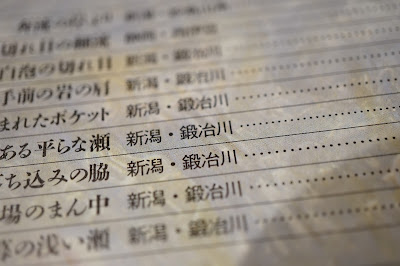 切れ目の
白泡の切れ目 新潟・鍛冶川
手前の岩の肩 新潟・鍛冶川
まれたポケット 新潟・鍛冶川
ある平らな瀬 新潟・鍛冶川
ち込みの脇 新潟・鍛冶川
場のまん中 新潟・鍛冶川
の浅い瀬 新潟・鍛冶川